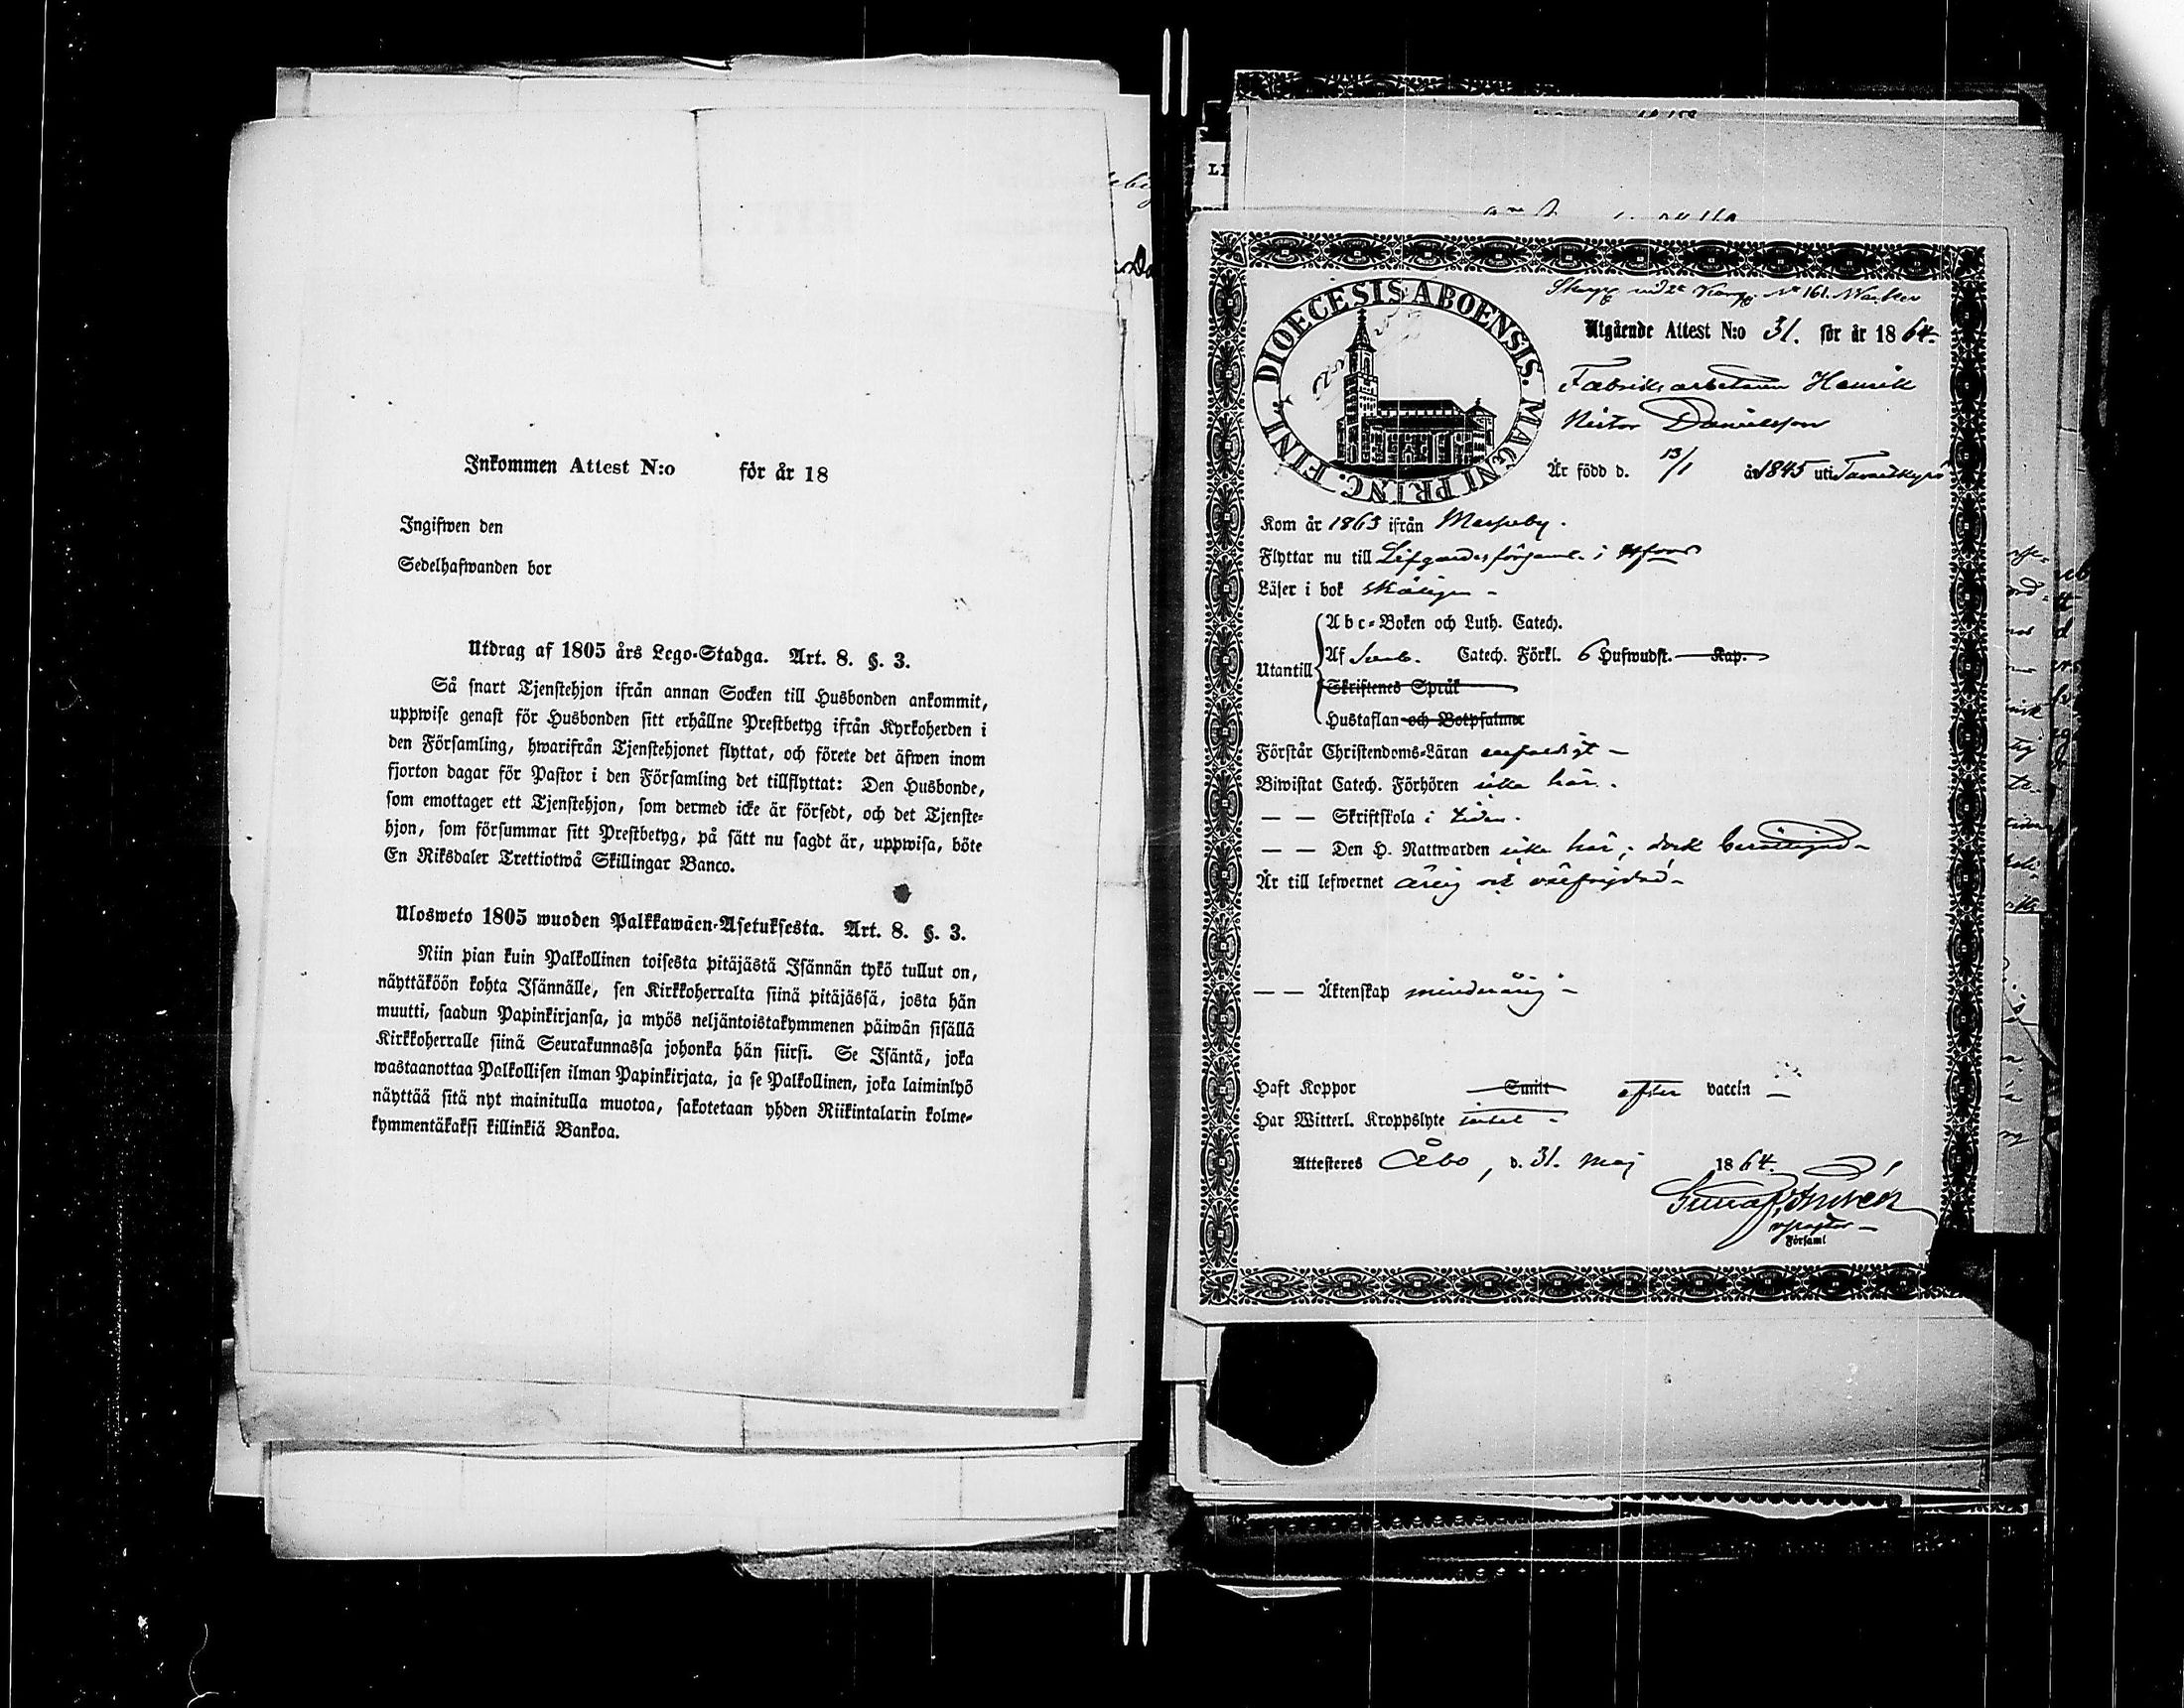 Inkommen Attest N:o för år 18
Ingifwen den
Sedelhafwanden bor
Utdrag af 1805 års Lego-Stadga. Art. 8. §. 3.
Så snart Tjenstehjon ifrån annan Socken till Husbonden ankommit,
uppwise genast för Husbonden sitt erhållne Prestbetyg ifrån Kyrkoherden i
den Församling, hwarifrån Tjenstehjonet flyttat, och förete det äfwen inom
fjorton dagar för Pastor i den Församling det tillflyttat: Den Husbonde,
som emottager ett Tjenstehjon, som dermed icke är försedt, och det Tjenste-
hjon, som försummar sitt Prestbetyg, på sätt nu sagdt är, uppwisa, böte
En Riksdaler Trettiotwå Skillingar Banco.
Ulosweto 1805 wuoden Palkkawäen-Asetuksesta. Art. 8. §. 3.
Niin pian kuin Palkollinen toisesta pitäjästä Isännän tykö tullut on,
näyttäköön kohta Isännälle, sen Kirkkoherralta siinä pitäjässä, josta hän
muutti, saadun Papinkirjansa, ja myös neljäntoistakymmenen päiwän sisällä
Kirkkoherralle siinä Seurakunnassa johonka hän siirsi. Se Isäntä, joka
wastaanottaa Palkollisen ilman Papinkirjata, ja se Palkollinen, joka laiminlyö
näyttää sitä nyt mainitulla muotoa, sakotetaan yhden Riikintalarin kolme-
kymmentäkaksi killinkiä Bankoa.
DIOECESIS ABOENSIS. MAGNI PRINC. FINL.
N:o 161.
Utgående Attest N:o 31. för år 1864.
Fabriksarbetaren Henrik
Danielsson
Är född d. 13/1 år 1845 uti Tavastkyrö
Kom år 1863 ifrån Messuby.
Flyttar nu till Lifgardesförsaml. i Hfors
Läser i bok
Utantill
Abc-Boken och Luth. Catech.
Af Catech. Förkl. 6 Hufwudst. Kap.
Skriftenes Språk
Hustaflan och Botpsalmer
Förstår Christendoms-Läran enfaldigt –
Biwistat Catech. Förhören icke här.
— — Skriftskola i tiden.
— — Den H. Nattwarden icke här; dock berättigad –
Är till lefwernet ärlig och välfrejdad –
— — Äktenskap minderårig –
Haft Koppor Smitt efter vaccin –
Har Witterl. Kroppslyte intet –
Attesteres Åbo, d. 31. Maj 1864.
Församl